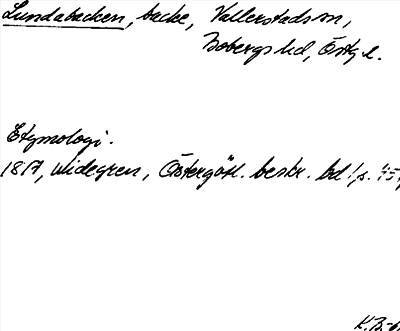 Lundabacken, backe, Vallerstads sn,
Bobergs hd, Östg. l.
Etymologi.
1817, Widegren, Östergötl. beskr. bd 1, s.
K.B-n